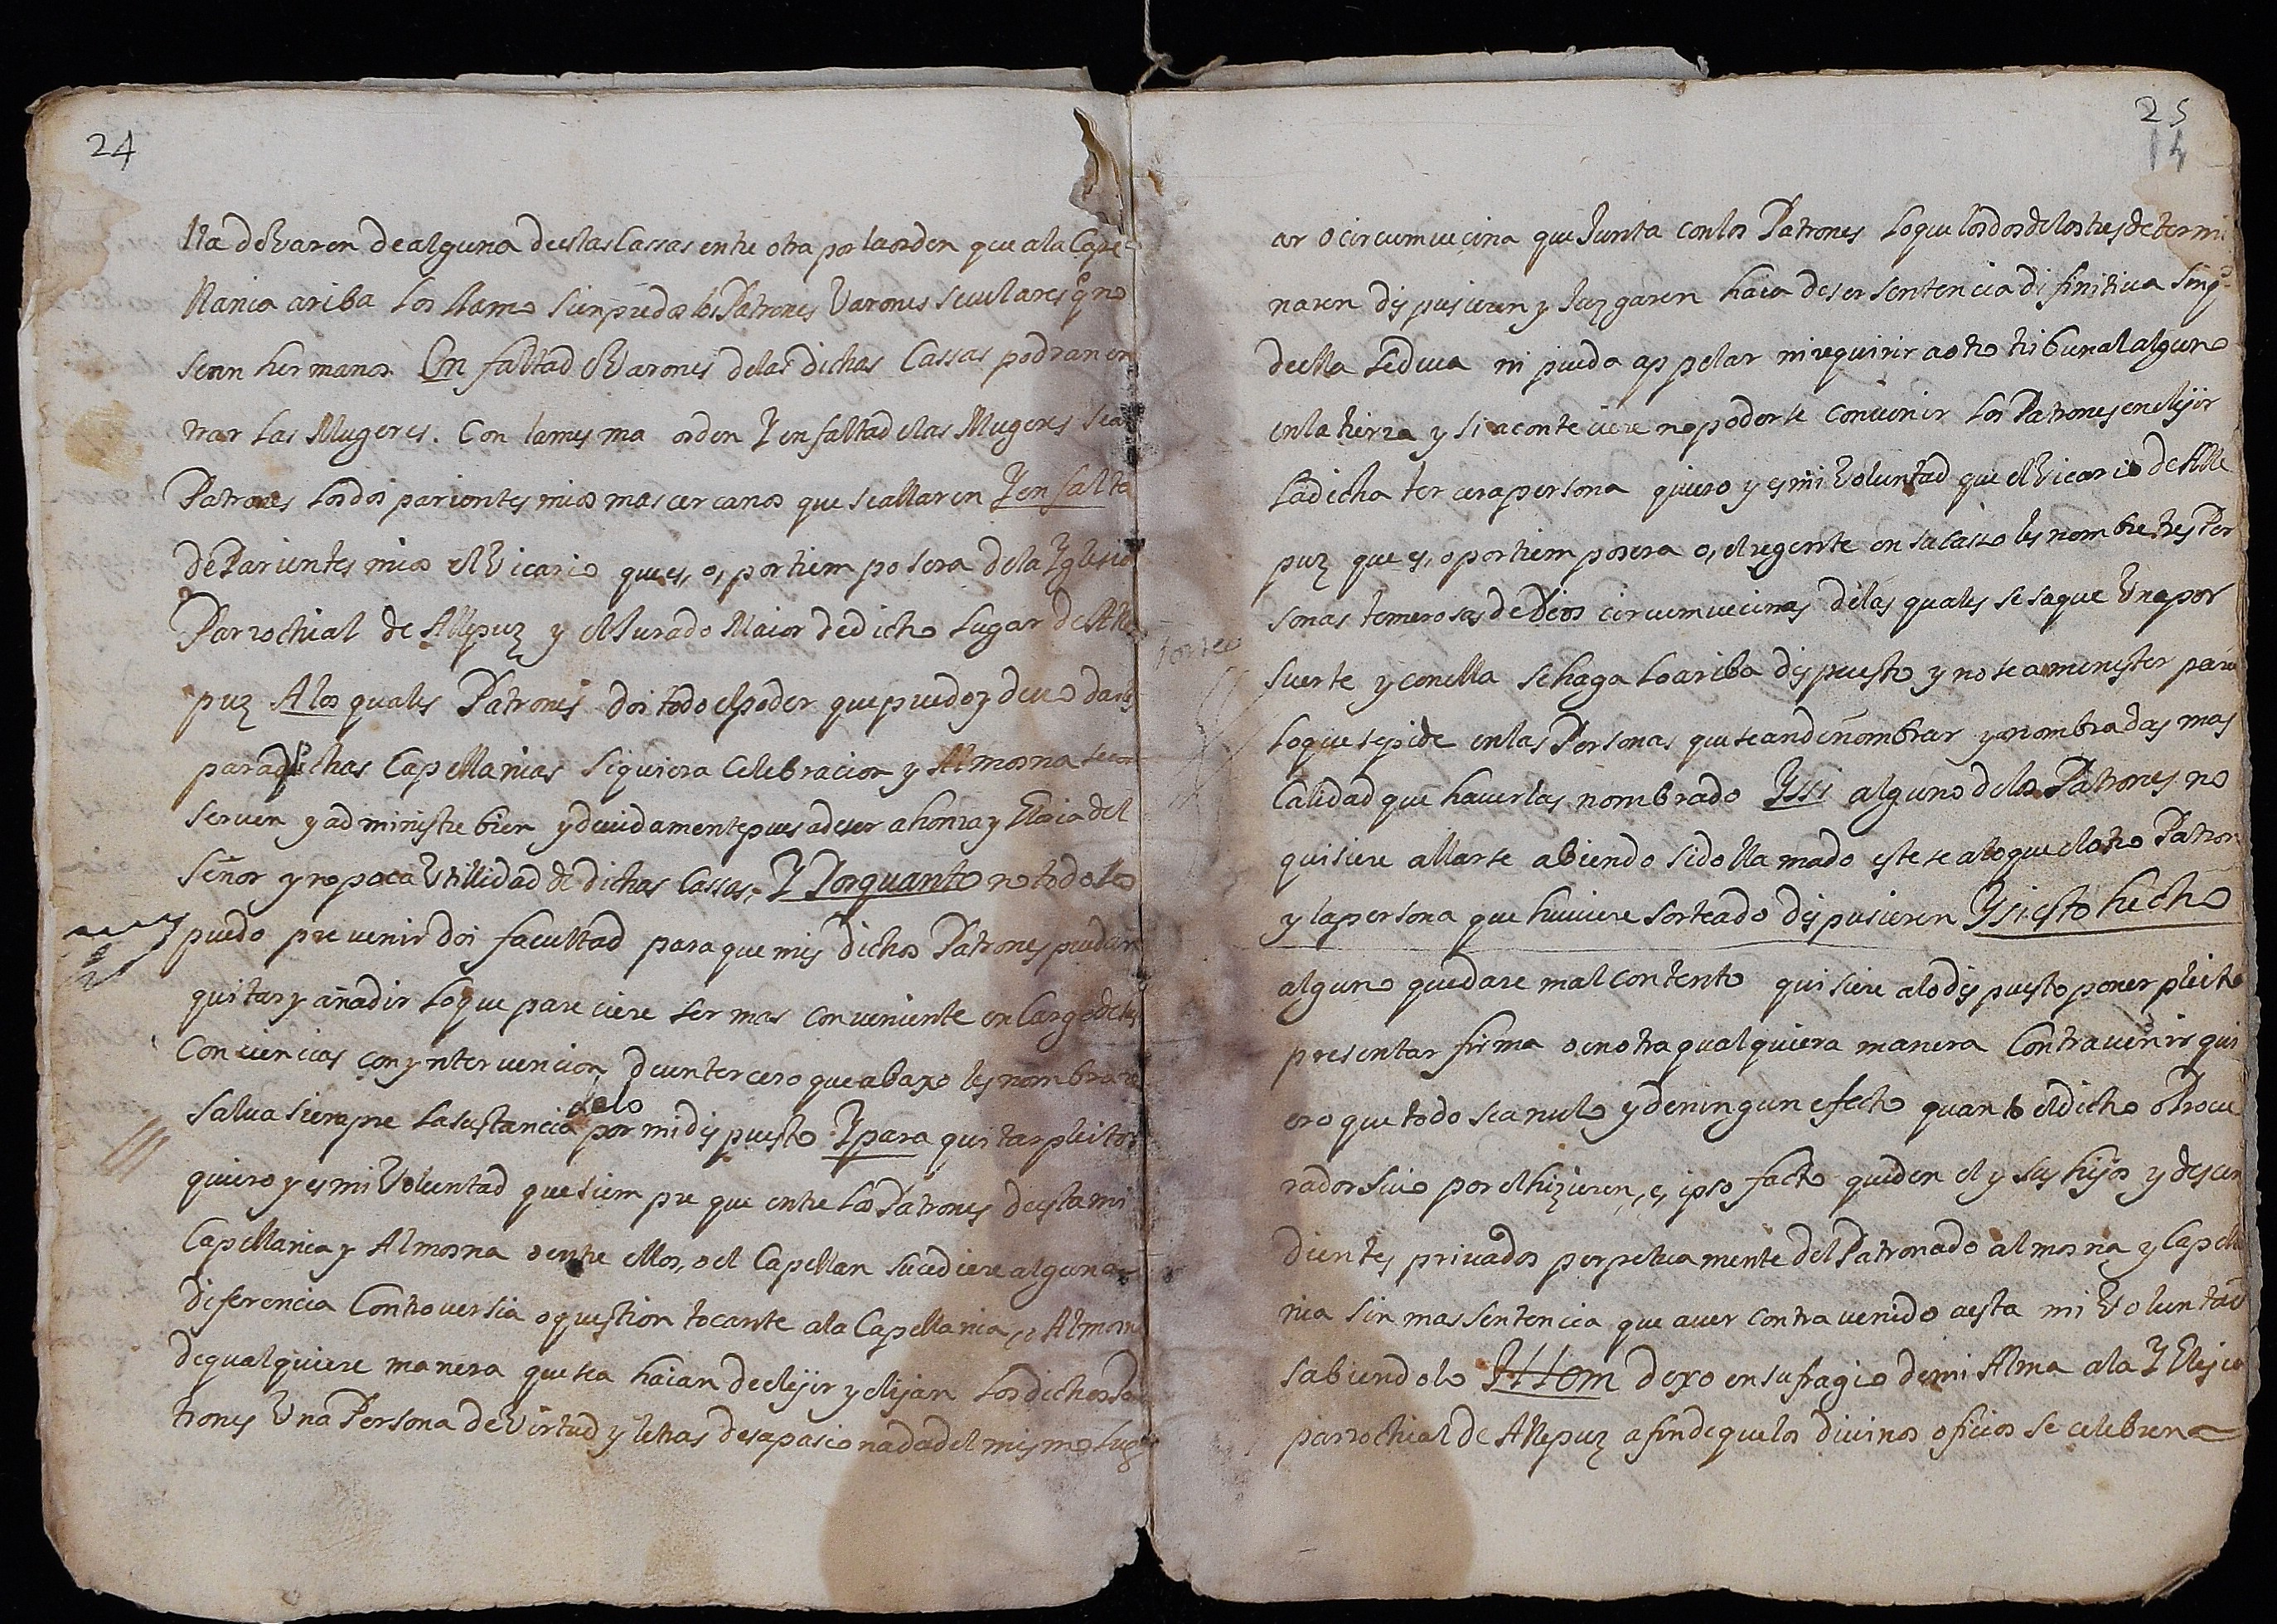 24
lia de Varon de alguna destas Cassas entre otra por la orden que a la Cape-
llania ariba los llamo sienpre dos los Patrones Varones seculares q no
sean hermanos. En falta de Varones de las dichas Cassas podran en
trar las Mugeres. Con la mesma orden Y en falta de las Mugeres sean
Patrones los dos parientes mios mas cercanos que se allaren Y en falta
de Parientes mios el Vicario que es, o, por tiempo sera de la Yglesia
Parrochial de Allepuz y el Jurado Maior de dicho Lugar de Alle
puz A los quales Patrones doi todo el poder que puedo y devo darles
para q dichas Capellanias siquiera Celebracion y Almosna se con
serven y administre bien y devidamente pues a de ser a honra y Gloria del
Señor y no poca Utillidad de dichas Cassas, Y Porquanto no todo lo
puedo prevenir doi facultad para que mis dichos Patrones puedan
quitar y añadir lo que pareciere ser mas conveniente en Cargo de sus
Conciencias con yntervencion de un tercero que abaxo les nombrare
salva siempre la sustancia de lo por mi dispuesto Y para quitar pleitos
quiero y es mi Voluntad que siempre que entre los Patrones desta mi
Capellania y Almosna o entre ellos, o el Capellan sucediere alguna
diferencia Controversia o question tocante a la Capellania, o Almosna
de qualquiere manera que sea haian de elejir y elijan los dichos Pa
trones Una Persona de Virtud y letras desapasionada del mismo Lug
25
14
ar o circumvecina que Junta con los Patrones lo que los dos de los tres determi
naren dispusieren y Juzgaren haia de ser sentencia difinitiva sin q
della se deva ni pueda appelar ni requirir a otro tribunal alguno
en la tierra y si aconteciere no poderse convenir los Patrones en elijir
la dicha tercera persona quiero y es mi Voluntad que el Vicario de Alle
puz que es, o por tiempo sera o, el regente en su casso les nombre tres Per
sonas temerosas de Dios circumvecinas de las quales se saque Una por
suerte y con ella se haga lo ariba dispuesto y no sea menester para
lo que se pide en las Personas que se an de nombrar y nombradas mas
Calidad que haverlas nombrado Y si alguno de los Patrones no
quisiere allarse abiendo sido llamado este se a lo que el otro Patron
y la persona que huviere sorteado dispusieren Y si esto hecho
alguno quedare mal contento quisiere a lo dispuesto poner pleito
presentar firma o en otra qualquiera manera Contravenir qui
ero que todo sea nulo y de ningun efecto quanto el dicho o Procu
rador suio por el hizieren, e, ipso facto queden el y sus hijos y descen
dientes privados perpetuamente del Patronado almosna y Capella
nia sin mas sentencia que aver contravenido a esta mi Voluntad
sabiendolo Ittem dexo en sufragio de mi Alma a la Yglesia
parrochial de Allepuz a fin de que los divinos oficios se celebren